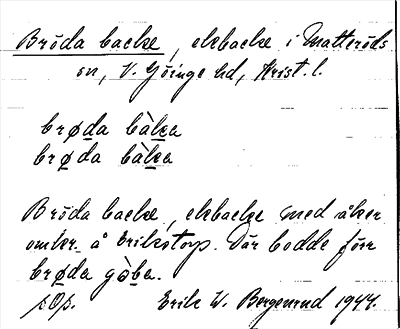 Bröda backe, ekbacke i Matteröds
sn, V. Göinge hd, Krist. l.
brøda bàka
brøda bàka
Bröda backe, ekbacke med åker
omkr. å Erikstorp. Där bodde förr
brøda gòba.
Erik W. Bergenrud 1944.